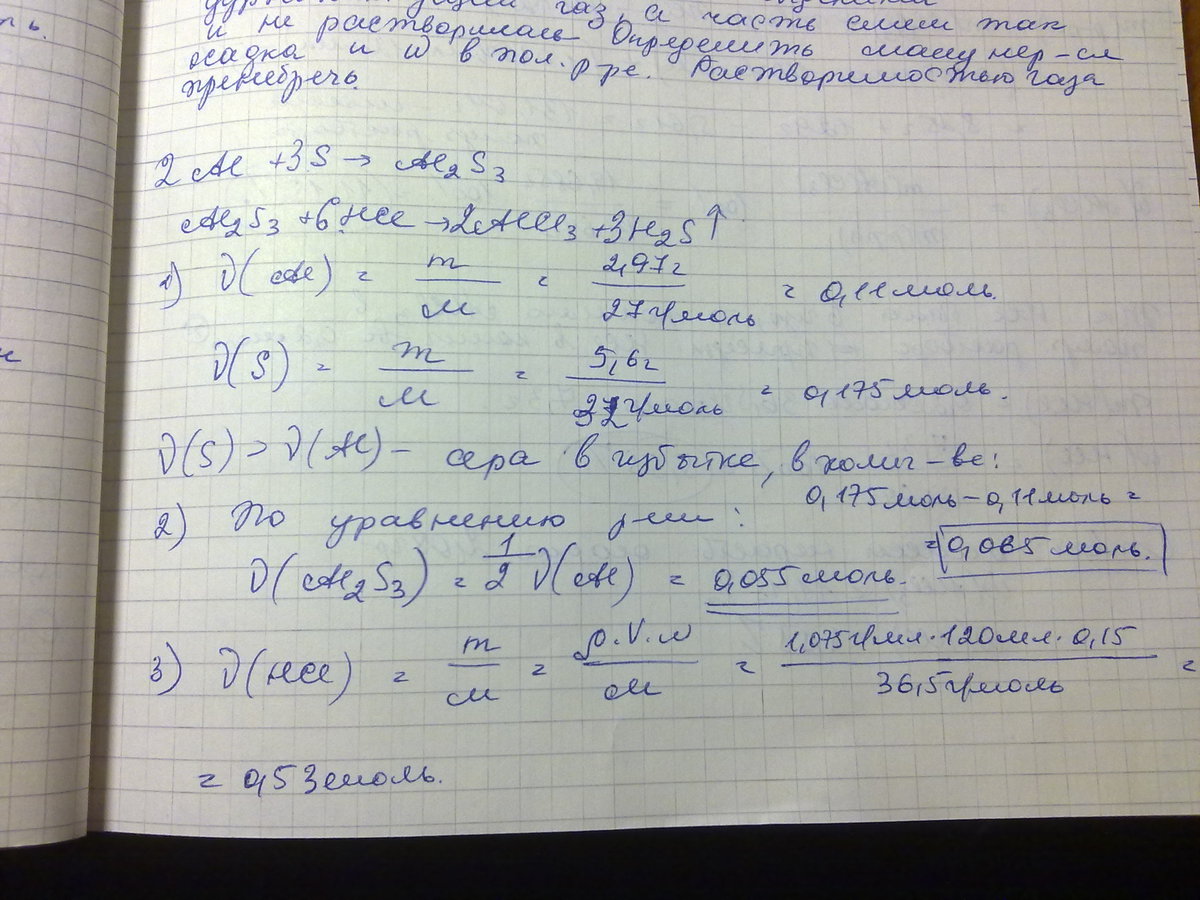 газ, а часть смеси так
и не растворилась. Определить массу нер-ся
осадка и ω в пол. р-ре. Растворимостью газа
пренебречь.
2Al + 3S → Al₂S₃
Al₂S₃ + 6HCl → 2AlCl₃ + 3H₂S↑
1) ν(Al) = m/M = 2,97г/27г/моль = 0,11моль.
ν(S) = m/M = 5,6г/32г/моль = 0,175моль.
ν(S) > ν(Al) – сера в избытке, в колич-ве:
0,175моль – 0,11моль =
= 0,065моль.
2) По уравнению р-ии:
ν(Al₂S₃) = 1/2 ν(Al) = 0,055моль.
3) ν(HCl) = m/M = ρ·V·ω/M = 1,075г/мл·120мл·0,15/36,5г/моль =
= 0,53моль.